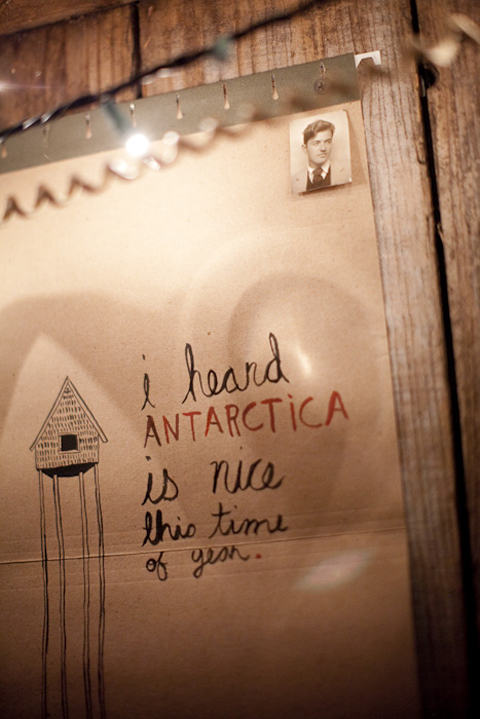 i heard
ANTARCTiCA
is nice
this time
of year.